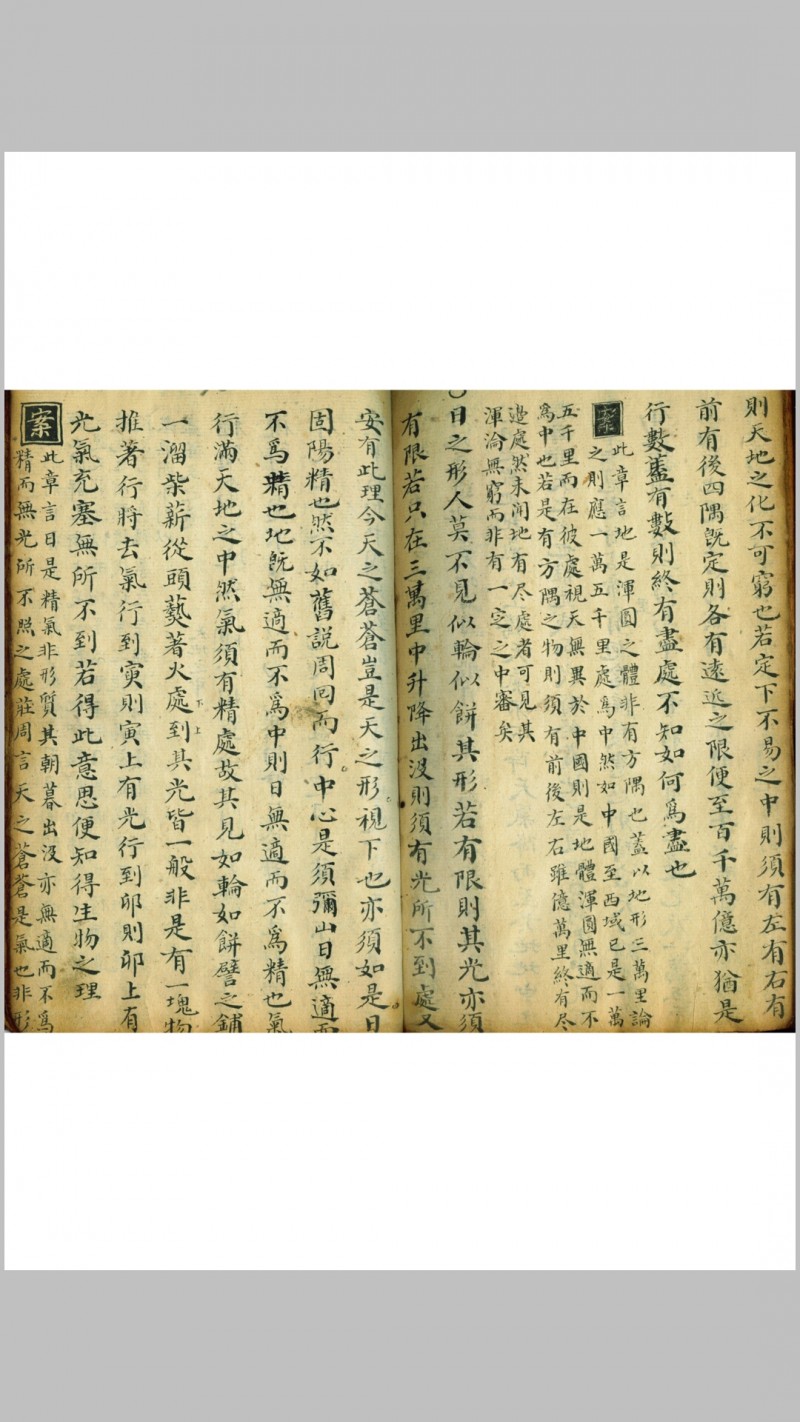 則天地之化不可窮也若定下不易之中則須有左有右有
前有後四隅旣定則各有遠近之限便至百千萬億亦猶是
行數蓋有數則終有盡處不知如何爲盡也
案
此章言地是渾圓之體非有方隅也蓋以地形三萬里論
之則應一萬五千里處爲中然如中國至西域已是一萬
五千里而在彼處視天無異於中國則是地體渾圓無適而不
爲中也若是有方隅之物則須有前後左右雖億萬里終有尽
邊處然未聞地有尽處者可見其
渾淪無窮而非有一定之中審矣
○日之形人莫不見似輪似餠其形若有限則其光亦須
有限若只在三萬里中升降出沒則須有光所不到處又
安有此理今天之蒼蒼豈是天之形視下也亦須如是日
固陽精也然不如舊說周回而行中心是須彌山日無適而
不爲精也地旣無適而不爲中則日無適而不爲精也氣
行滿天地之中然氣須有精處故其見如輪如餠譬之鋪
一溜柴薪從頭爇著火處到其光皆一般非是有一塊物
下上
推著行將去氣行到寅則寅上有光行到卯則卯上有
光氣充塞無所不到若得此意思便知得生物之理
案
此章言日是精氣非形質其朝暮出沒亦無適而不爲
精而無光所不照之處莊周言天之蒼蒼是氣也非形